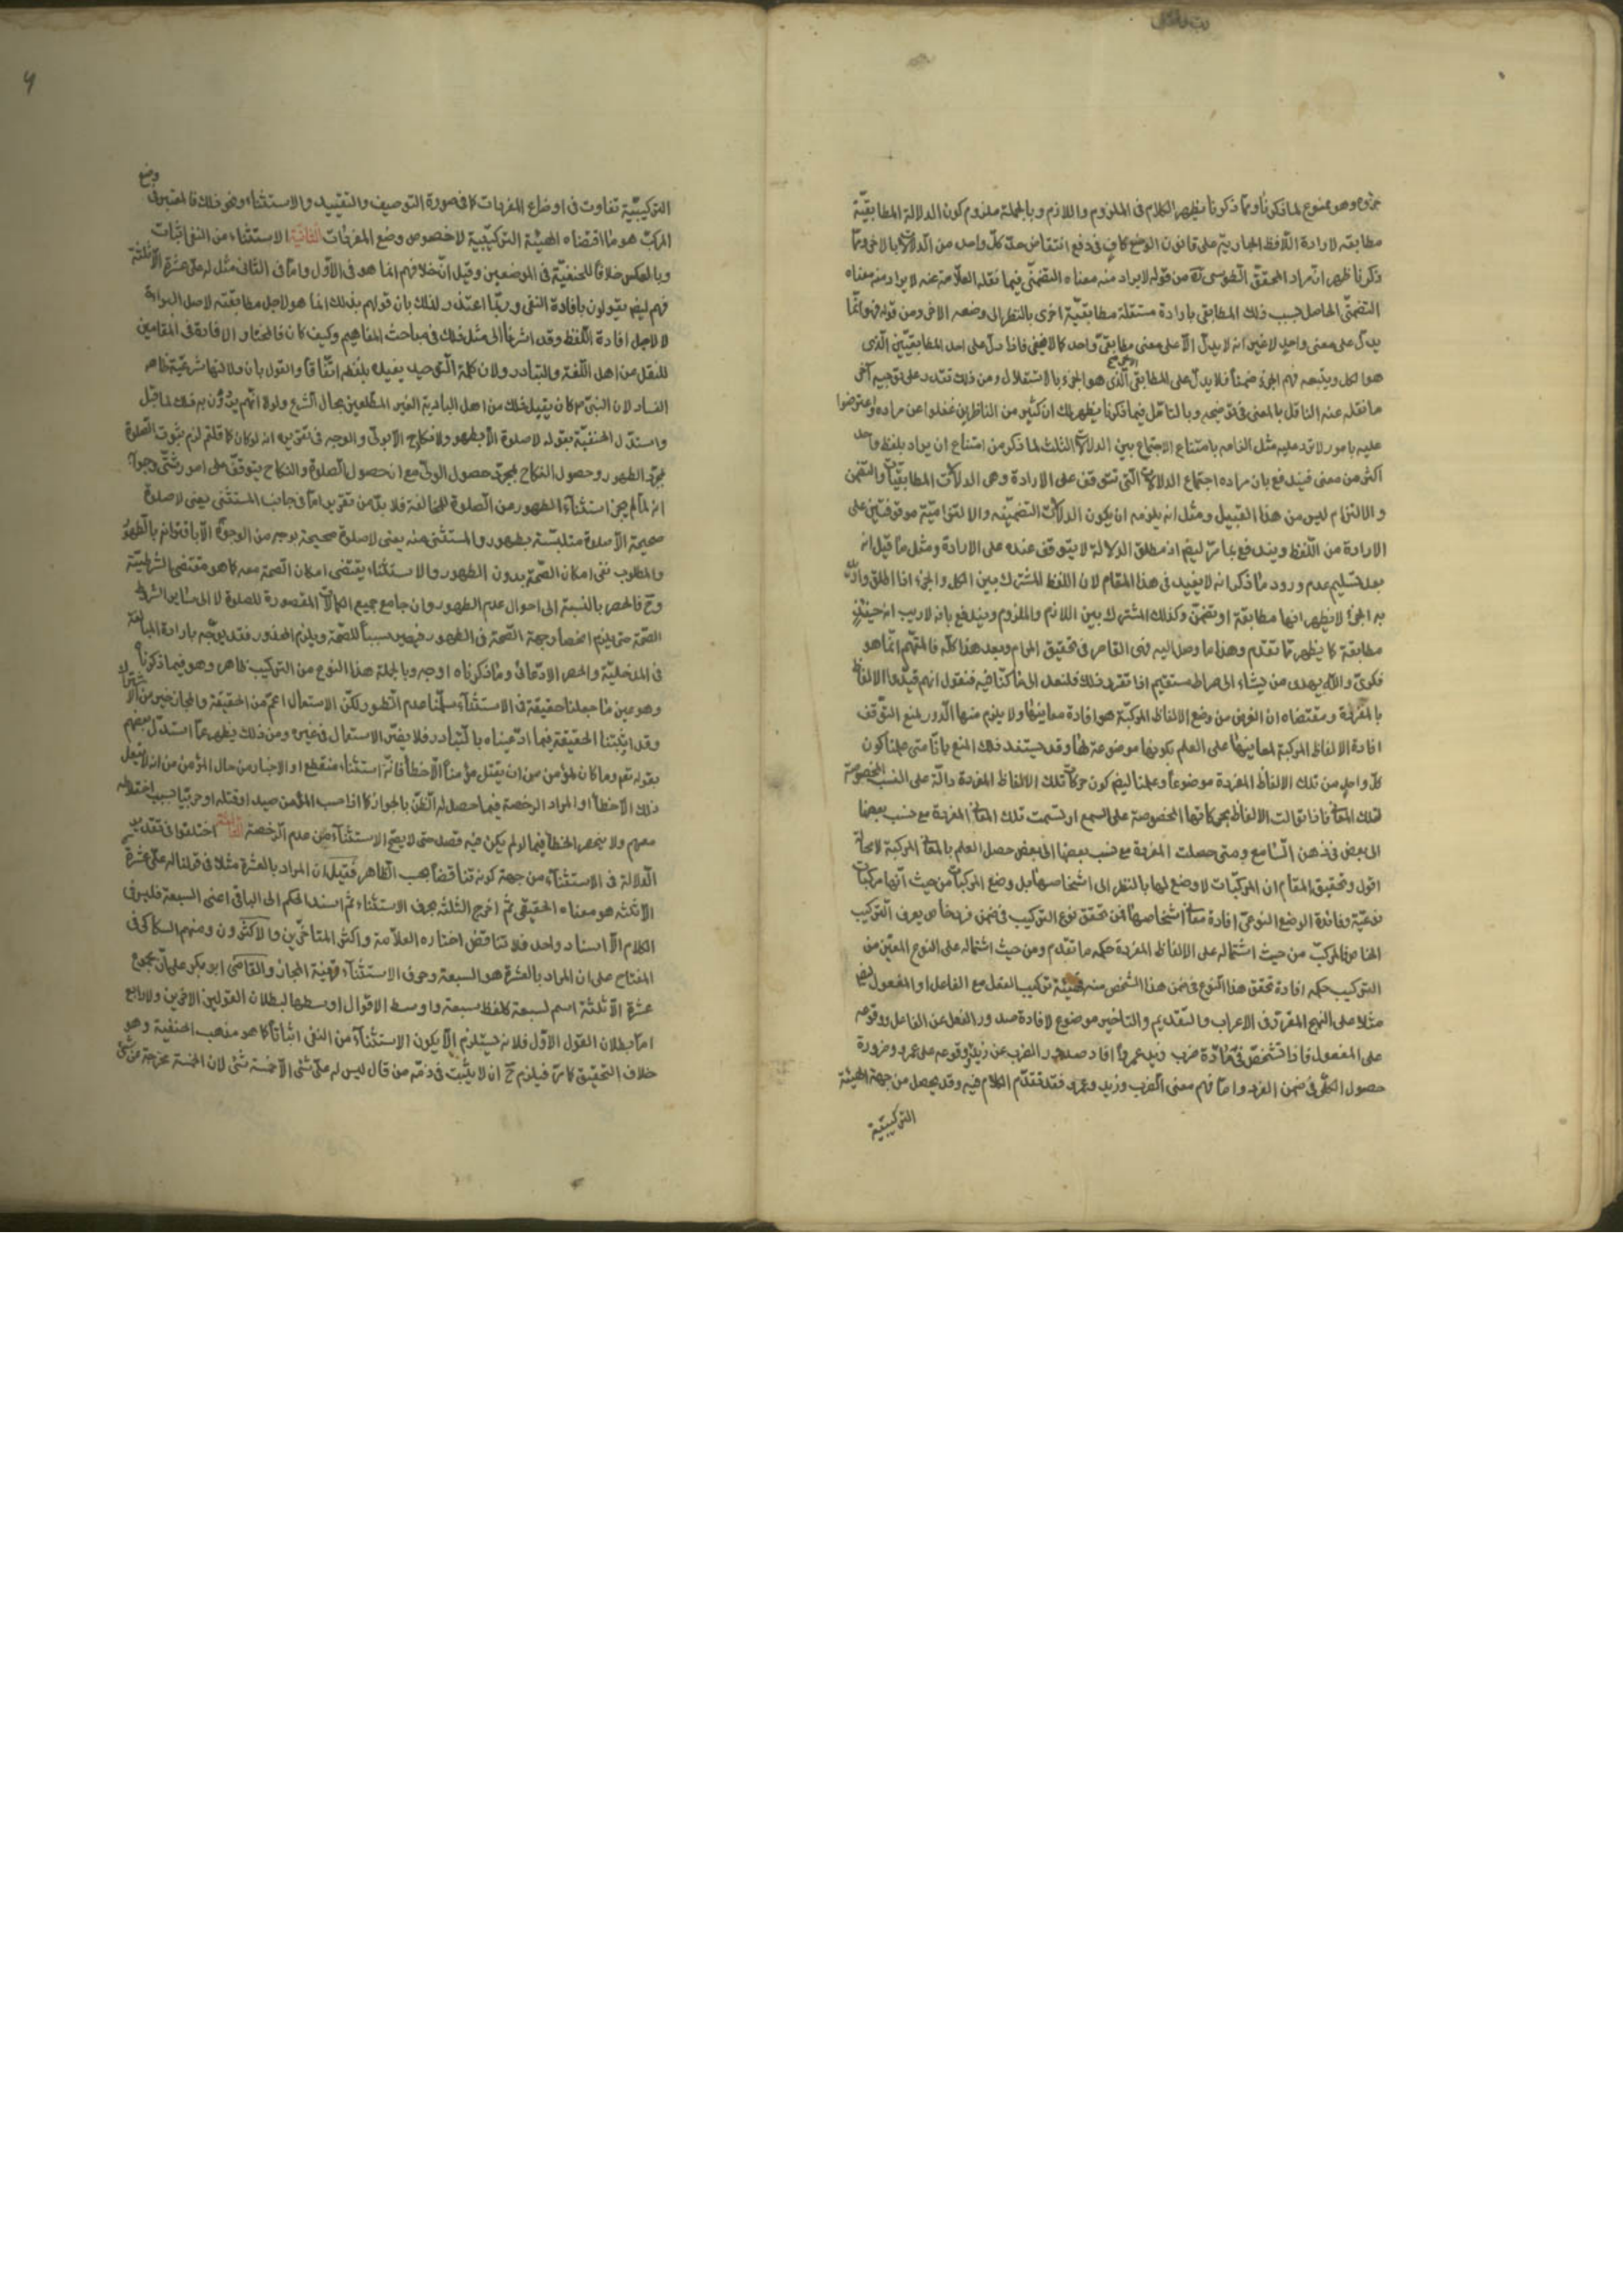 وهو ممنوع لما ذكرنا ومما ذكرنا يظهر الكلام فى الملزوم واللازم وبالجملة ملزوم كون الدلالة المطابقيّة
مطابقه لارادة اللافظ الجارية على قانون الوضع كاف فى دفع انتقاض حدّ كلّ واحد من الدلالات بالاخر ومما
ذكرنا ظهر انّ مراد المحقق الطوسى من قوله لا يراد منه معناه التضمنّى فيما نقله العلّامة عنه لا يراد منه معناه
التضمنّى الحاصل بسبب ذلك المطابقى بارادة مستقلة مطابقيّة اخرى بالنظر الى وضعه الاخر ومن قوله وانما
يدلّ على معنى واحد لا غير انه لا يدلّ الّا على معنى مطابقىّ واحد فاذا دلّ على احد المطابقيّين الّذى
هو الكل ويتبعه فهم الجزء ضمناً فلا يدلّ على المطابقى الّذى هو الجزء بالاستقلال ومن ذلك تقتدر على توجيه آخر
ما نقله عنه الناقل بالمعنى فى توضيحه وبالتامّل فيما ذكرنا يظهر لك ان كثير من الناظرين غفلوا عن مراده واعترضوا
عليه بامور لا ترد عليه مثل الزامه بامتناع الاجتماع بين الدلالات الثلث لما ذكر من امتناع ان يراد بلفظ واحد
اكثر من معنى فيندفع بان مراده اجتماع الدلالات الّتى تتوقف على الارادة وهى الدلالات المطابقيّات والتضمن
والالتزام ليس من هذا القبيل ومثل انه يلزمه ان يكون الدلالات التضمنيّه والالتزاميّة موقوفتين على
الارادة من اللّفظ ويندفع بما مرّ ايضا اذ مطلق الدلالة لا يتوقف عنده على الارادة ومثل ما قيل انه
بعد تسليم عدم ورود ما ذكر انه لا يفيد فى هذا المقام لان اللفظ المشترك بين الكل والجزء اذا اطلق واريد
به الجزء لا يظهر انها مطابقة او تضمّن وكذلك المشترك بين اللازم والملزوم ويندفع بانه لا ريب انه حينئذ
مطابقة كما يظهر مما تقدم وهذا ما وصل اليه فهمى القاصر فى تحقيق المرام وبعد هذا كلّه فالمتّهم انّما هو
فكرى والله يهدى من يشاء الى صراط مستقيم اذا تقرر ذلك فلنعد الى ما كنّا فيه فنقول انهم قيّدوا الالفاظ
بالمفردة ومقتضاه ان الغرض من وضع الالفاظ المركبّة هو افادة معانيها ولا يلزم منها الّدور لمنع التوقف
افادة الالفاظ المركبة لمعانيها على العلم بكونها موضوعة لها وقد يستند ذلك المنع بانّا متى علمنا كون
كلّ واحد من تلك الالفاظ المفردة موضوعاً وعلمنا ايضا كون حركات تلك الالفاظ المفردة دالّة على النسب المخصوصة
لتلك المعانى فاذا توالت الالفاظ بحركاتها المخصوصة على السمع ارتسمت تلك المعانى المفردة مع نسب بعضها
الى بعض فى ذهن الّسامع ومتى حصلت المفردة مع نسب بعضها الى بعض حصل العلم بالمعانى المركبة لا محالة
اقول وتحقيق المقام ان المركبّات لا وضع لها بالنظر الى اشخاصها بل وضع المركبات من حيث انّها مركبات
نوعيّة وفائدة الوضع النوعىّ افادة معانى اشخاصها فمن تحقق نوع التركيب فى ضمن فرد خاص يعرف التركيب
الخاص فالمركبّ من حيث اشتماله على الالفاظ المفردة حكمه ما تقدم ومن حيث اشتماله على النوع المعيّن من
التركيب حكمه افادة تحقق هذا النوع فى ضمن هذا الشخص منه فهيئة تركيب الفعل مع الفاعل او المفعول ايضا
مثلا على النهج المقرّر فى الاعراب والتقديم والتاخير موضوع لافادة صدور الفعل عن الفاعل ووقوعه
على المفعول فاذا تشخّص فى مادّة ضرب زيد عمرواً افاد صدور الضرب عن زيد ووقوعه على عمرو ضرورة
حصول الكلّى فى ضمن الفرد وامّا فهم معنى الضرب وزيد وعمرو فقد تقدّم الكلام فيه وقد يحصل من جهة الهيئة
التركيبيّة
وضع
التركيبيّة تفاوت فى اوضاع المفردات كما فى صورة التوصيف والتقييد والاستثناء ونحو ذلك فالمعتبر فى
المركبّ هو ما اقتضاه الهيئة التركيبية لا خصوص وضع المفردات الثانية الاستثناء من النفى اثبات
وبالعكس خلافاً للحنفيّة فى الموضعين وقيل انّ خلافهم انما هو فى الاوّل وامّا فى الثانى مثل له علىّ عشرة الّا ثلثة
فهم ايضا يقولون بافادة النفى وربّما اعتذر لذلك بان قولهم بذلك انما هو لاجل مطابقته لاصل البراءة
لا لاجل افادة اللّفظ وقد اشرنا الى مثل ذلك فى مباحث المفاهيم وكيف كان فالمختار الافادة فى المقامين
للنقل من اهل اللّغة والتبادر ولان كلمة الّتوحيد يفيده بلفظه اتّفاقا والقول بان دلالتها شرعيّة ظاهر
الفساد لان النبىّ كان يقبل ذلك من اهل البادية الغير المطّلعين بحال الشرع ولولا انّهم يريدون به ذلك لما قبل
واستدلّ الحنفيّة بقوله لا صلوة الّا بطهور ولا نكاح الّا بولىّ والوجه فى تقريره انه لو كان كما قلتم لزم ثبوت الصّلوة
بمجرّد الطهور وحصول النكاح بمجرد حصول الولىّ مع ان حصول الصلوة والنكاح يتوقّف على امور شتّى وجوابه
انه لمّا لم يجز استثناء الطهور من الصّلوة للمخالفة فلا بدّ من تقرير امّا فى جانب المستثنى يعنى لا صلوة
صحيحة الّا صلوة متلبسّة بطهور والمستثنى منه يعنى لا صلوة صحيحة بوجه من الوجوه الّا باقترانه بالطّهور
والمطلوب نفى امكان الصّحة بدون الطهور والاستثناء يقتضى امكان الصّحة معه كما هو مقتضى الشرطيّة
وح فالحصر بالنسبة الى احوال عدم الطهور وان جامع جميع الكمالات المقصورة للصلوة لا الى سائر الشرائط
الصّحة حتى يلزم انحصار وجهة الصّحة فى الطهور فيصير سبباً للصّحة ويلزم المحذور فقد يوجّه بارادة المبالغة
فى المدخليّة والحصر الادّعائى وما ذكرناه اوجه وبالجملة هذا النوع من التركيب ظاهر وهو فيما ذكرنا
وهو عين ما جعلنا حقيقة فى الاستثناء سلّمنا عدم الّظهور لكنّ الاستعمال اعمّ من الحقيقة والمجاز خير من الاشتراك
وقد اثبتنا الحقيقة فيما ادّعيناه بالتبادر فلا يضّر الاستعمال فى غيره ومن ذلك يظهر عما استدلّ بعضهم
بقوله تعم وما كان لمؤمن من ان يقتل مؤمناً الّا خطأ فانّه استثناء منقطع او الاخبار من حال المؤمن من انه لا يفعل
ذلك الّا خطأ او المراد الرخصة فيما حصل له الظنّ بالجواز كما اذا حسب المؤمن صيدا وقتله او حربيّا بسبب اختلاطه
معهم ولا ينحصر الخطأ فيما لو لم يكن فيه قصد حتى لا يصحّ الاستثناء من عدم الرّخصة الثالثة اختلفوا فى تقدير
الدّلالة فى الاستثناء من جهة كونه تناقضاً بحسب الظّاهر فقيل ان المراد بالعشرة مثلا فى قولنا له علىّ عشرة
الّا ثلثه هو معناه الحقيقى ثمّ اخرج الثلثه بحرف الاستثناء ثم اسند الحكم الى الباقى اعنى السبعة فليس فى
الكلام الّا اسناد واحد فلا تناقض اختاره العلّامة واكثر المتاخّرين والاكثرون ومنهم السكاكى فى
المفتاح على ان المراد بالعشرة هو السبعة وحرف الاستثناء قرينة المجاز والقاضى ابو بكر على انّ مجموع
عشرة الّا ثلثة اسم لسبعة كلفظ سبعة واوسط الاقوال اوسطها لبطلان القولين الاخرين ولا رابع
امّا بطلان القول الاوّل فلانه يستلزم ألّا يكون الاستثناء من النفى اثباتاً كما هو مذهب الحنفية وهو
خلاف التحقيق كما مرّ فيلزم ح ان لا يثبت فى ذمّه من قال ليس له علىّ شئ الّا خمسة شئ لان الخمسة مخرجة من شئ